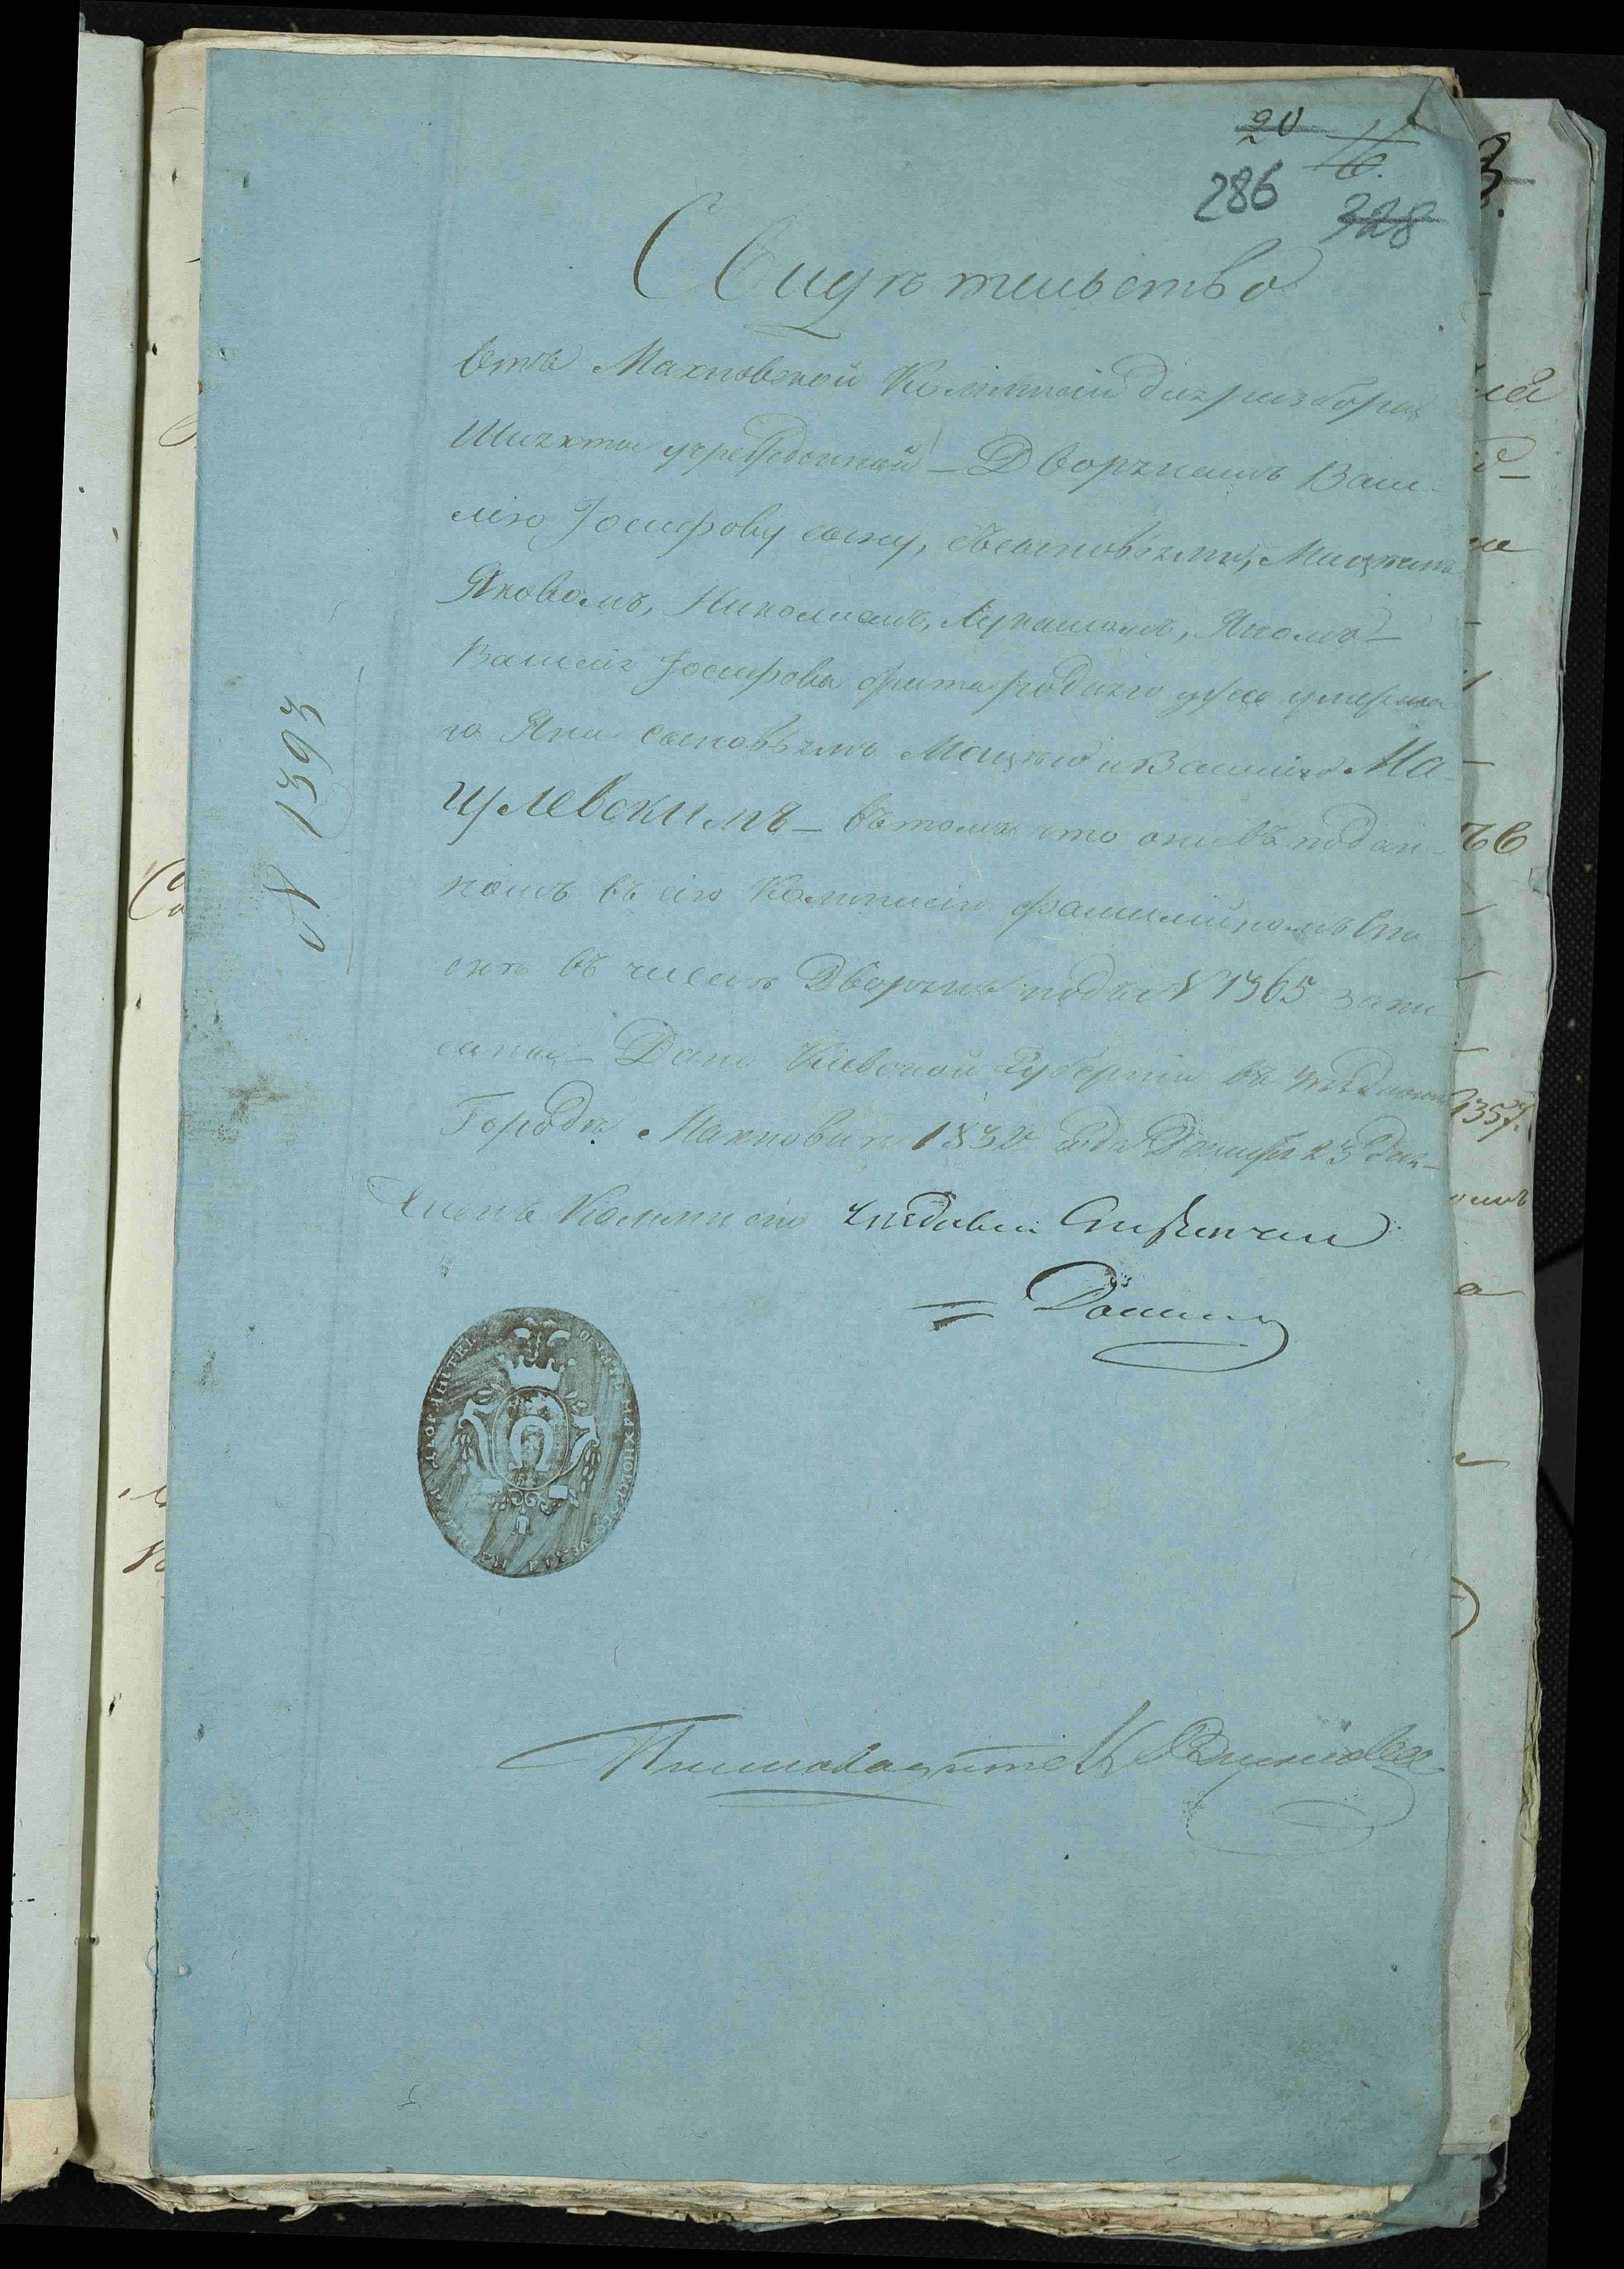 90
16.
286
328
Свидѣтельство
Отъ Махновской Коммисіи для разбора
Шляхты учрежденной — Дворянамъ Васи-
лію Іосифову сыну, съ сыновьями, Мацѣемъ
Яковомъ, Николаемъ, Лукашомъ, Яномъ —
Василія Іосифова брата роднаго уже умерша
го Яна сыновьямъ Мацѣю и Василію Ма-
цлевскимъ — въ томъ что они въ подан-
номъ въ сію Коммисію фамилійномъ спи
скѣ въ числѣ Дворянъ подъ N 1365 запи
саны — Дано Кіевской Губерніи въ уѣздномъ
Городѣ Махновкѣ 1832 года Декабря 23 дня —
Членъ Коммисіи
N 1393
Письмоводитель